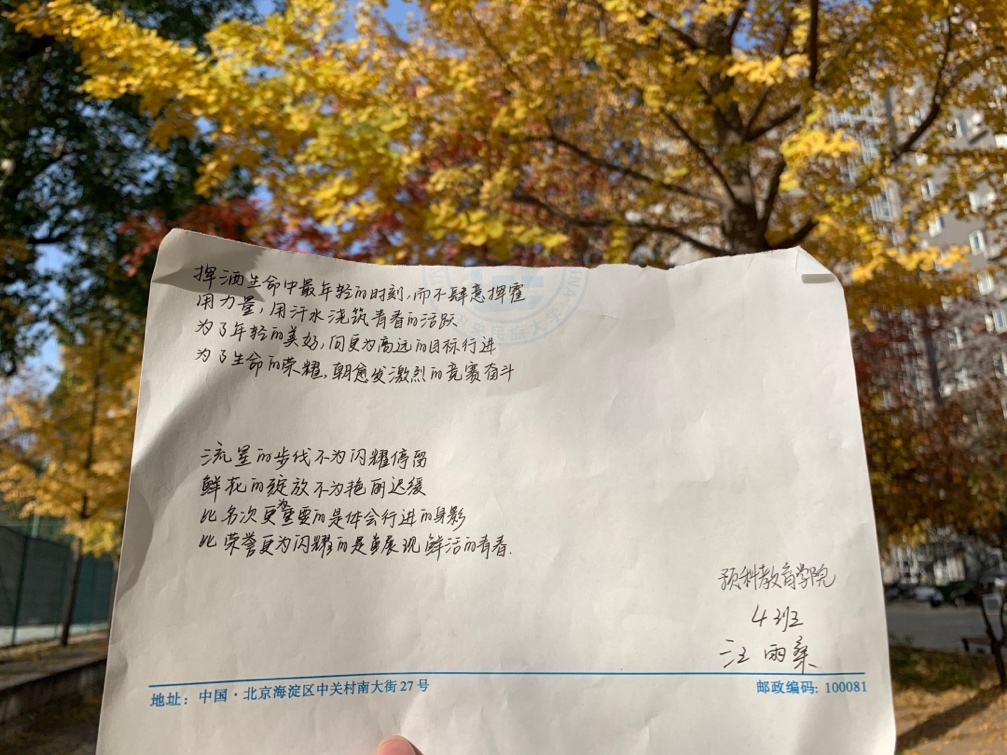 挥洒生命中最年轻的时刻，而不肆意挥霍
用力量，用汗水浇筑青春的活跃
为了年轻的美好，向更为高远的目标行进
为了生命的荣耀，朝愈发激烈的竞赛奋斗
流星的步伐不为闪耀停留
鲜花的绽放不为艳丽迟缓
比名次更为重要的是体会行进的身影
比荣誉更为闪耀的是展现鲜活的青春.
预科教育学院
4班
汪雨桑
地址：中国·北京海淀区中关村南大街27号
邮政编码：100081